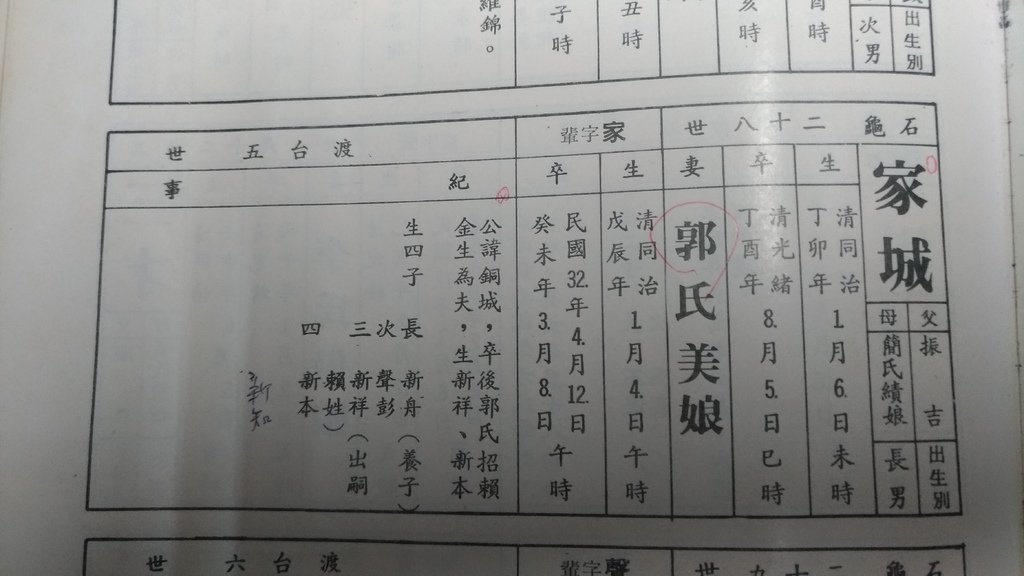 出生別
次男
酉時
亥時
丑時
子時
維錦。
石龜
二十八世
家字輩
渡台五世
家城
父
振吉
母
簡氏績娘
出生別
長男
生
清同治
丁卯年
1.月6.日未時
卒
清光緒
丁酉年
8.月5.日巳時
妻
郭氏美娘
生
清同治
戊辰年
1.月4.日午時
卒
民國32.年4.月12.日
癸未年3.月8.日
午時
紀事
公諱銅城，卒後郭氏招賴
金生為夫，生新祥、新本
生四子 長 新舟（養子）
次 聲彭
三 新祥（出嗣
賴姓）
四 新本
新知
石龜
二十九世
聲字輩
渡台六世